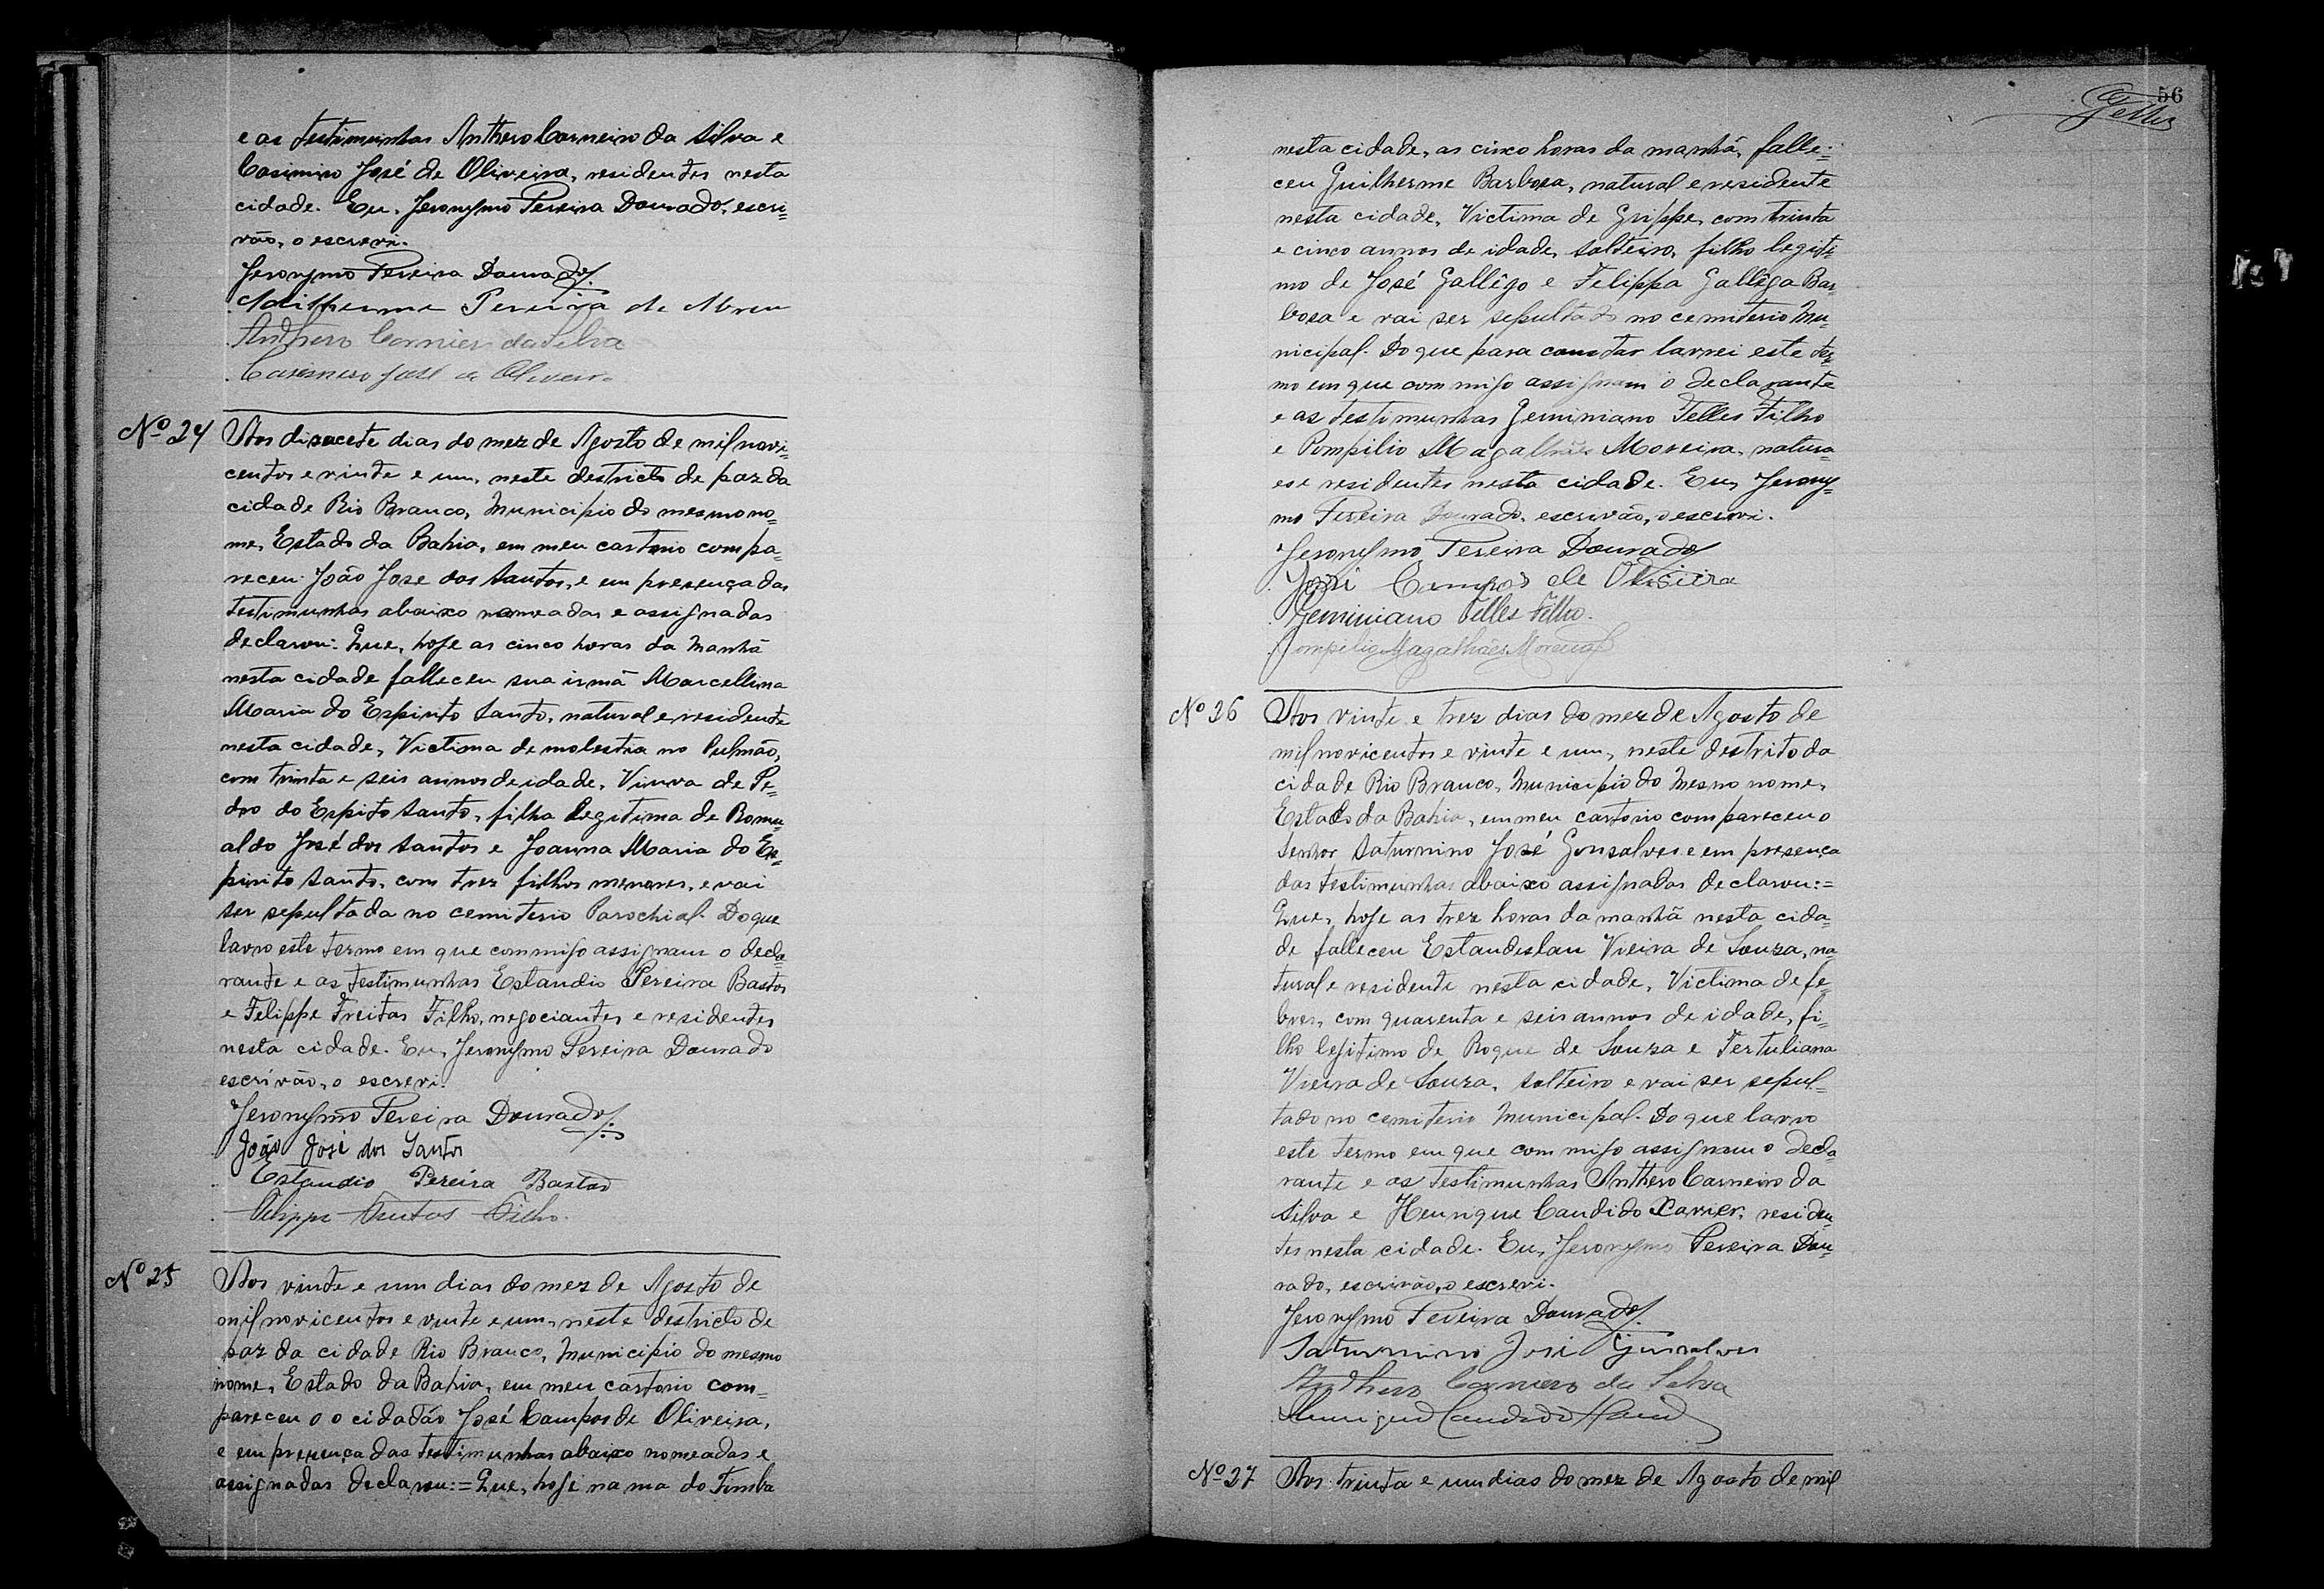 e as testimunhas Anthero Carneiro da Silva e
Casimiro José de Oliveira, residentes nesta
cidade. Eu, Jeronymo Pereira Dourado, escri=
vão, o escrevi.
Jeronymo Pereira Dourado
Guilherme Pereira de Abreu
Anthero Carneiro da Silva
Casemiro José de Oliveira
Nº 24 Aos disacete dias do mez de Agosto de mil novi=
centos e vinte e um, neste destricto de paz da
cidade Rio Branco, Municipio do mesmo no=
me, Estado da Bahia, em meu cartorio compa=
receu João Jose dos Santos, e em presença das
testimunhas abaixo nomeadas e assignadas
declarou: Que, hoje as cinco horas da manhã
nesta cidade falleceu sua irmã Marcellina
Maria do Espirito Santo, natural e residente
nesta cidade, Victima de molestia no Pulmão,
com trinta e seis annos de idade, Viuva de Pe=
dro do Espito Santo, filha legitima de Romu=
aldo José dos Santos e Joanna Maria do Es=
pirito Santo, com trez filhos menores, e vai
ser sepultada no cemiterio Parochial. Do que
lavro este termo em que commigo assignam o decla=
rante e as testimunhas Estandio Pereira Bastos
e Felippe Freitas Filho, negociantes e residentes
nesta cidade. Eu, Jeronymo Pereira Dourado
escrivão, o escrevi.
Jeronymo Pereira Dourado
João José dos Santos
Estandio Pereira Bastos
Felippe Freitas Filho
Nº 25 Aos vinte e um dias do mez de Agosto de
mil novicentos e vinte e um, neste destricto de
paz da cidade Rio Branco, Municipio do mesmo
nome, Estado da Bahia, em meu cartorio com=
pareceu o o cidadão José Campos de Oliveira,
e em presença das testimunhas abaixo nomeadas e
assignadas declarou:= Que, hoje na rua do Timba
56
Telles
nesta cidade, as cinco horas da manhã, falle=
ceu Guilherme Barbosa, natural e residente
nesta cidade, Victima de Grippe, com trinta
e cinco annos de idade, solteiro, filho legiti
mo de José Gallêgo e Felippa Gallêga Bar=
bosa e vai ser sepultado no cemiterio Mu=
nicipal. Do que para constar lavrei este ter=
mo em que commigo assignam o declarante
e as testimunhas Geminiano Telles Filho
e Pompilio Magalhães Moreira, natura=
es e residentes nesta cidade. Eu, Jerony=
mo Pereira Dourado, escrivão, o escrevi.
Jeronymo Pereira Dourado
José Campos de Oliveira
Geminiano Telles Filho.
Pompilio Magalhães Moreira
Nº 26 Aos vinte e trez dias do mez de Agosto de
mil novicentos e vinte e um, neste destrito da
cidade Rio Branco, Municipio do mesmo nome,
Estado da Bahia, em meu cartorio compareceu o
Senhor Saturnino José Gonsalves e em presença
das testimunhas abaixo assignadas declarou:=
Que, hoje as trez horas da manhã nesta cida=
de falleceu Estandeslau Vieira de Souza, na=
tural e residente nesta cidade, Victima de fe=
bres, com quarenta e seis annos de idade, fi=
lho legitimo de Roque de Souza e Tertuliana
Vieira de Souza, solteiro e vai ser sepul=
tado no cemiterio Municipal. Do que lavro
este termo em que commigo assignam o decla=
rante e as testimunhas Anthero Carneiro da
Silva e Henrique Candido Xavier, residen=
tes nesta cidade. Eu, Jeronymo Pereira Dou=
rado, escrivão, o escrevi.
Jeronymo Pereira Dourado
Saturnino José Gonsalves
Anthero Carneiro da Silva
Henrique Candido
Nº 27 Aos trinta e um dias do mez de Agosto de mil